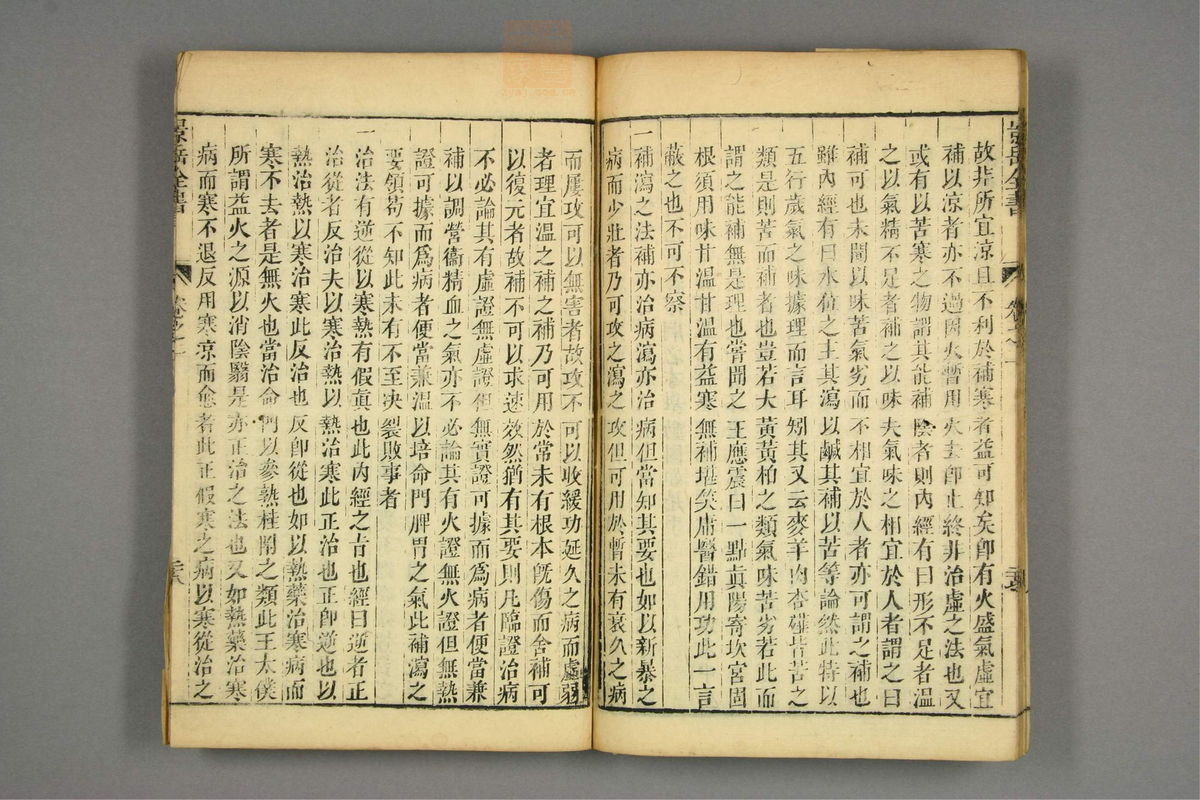 景岳全書
卷之一
故非所宜凉且不利於補寒者益可知矣卽有火盛氣虛宜
補以凉者亦不過因火暫用火去卽止終非治虛之法也又
或有以苦寒之物謂其能補陰者則內經有曰形不足者溫
之以氣精不足者補之以味夫氣味之相宜於人者謂之曰
補可也未聞以味苦氣劣而不相宜於人者亦可謂之補也
雖內經有曰水位之主其瀉以鹹其補以苦等論然此特以
五行歲氣之味據理而言耳矧其又云麥羊肉杏薤皆苦之
類是則苦而補者也豈若大黃黃柏之類氣味苦劣若此而
謂之能補無是理也嘗聞之王應震曰一點眞陽寄坎宮固
根須用味甘溫甘溫有益寒無補堪笑庸醫錯用功此一言
蔽之也不可不察
一補瀉之法補亦治病瀉亦治病但當知其要也如以新暴之
病而少壯者乃可攻之瀉之攻但可用於暫未有衰久之病
而屢攻可以無害者故攻不可以收緩功延久之病而虛弱
者理宜溫之補之補乃可用於常未有根本旣傷而舍補可
以復元者故補不可以求速效然猶有其要則凡臨證治病
不必論其有虛證無虛證但無實證可據而爲病者便當兼
補以調營衞精血之氣亦不必論其有火證無火證但無熱
證可據而爲病者便當兼溫以培命門脾胃之氣此補瀉之
要領苟不知此未有不至决裂敗事者
一治法有逆從以寒熱有假眞也此內經之旨也經曰逆者正
治從者反治夫以寒治熱以熱治寒此正治也正卽逆也以
熱治熱以寒治寒此反治也反卽從也如以熱藥治寒病而
寒不去者是無火也當治命門以參熟桂附之類此王太僕
所謂益火之源以消陰翳是亦正治之法也又如熱藥治寒
病而寒不退反用寒凉而愈者此正假寒之病以寒從治之
景岳全書
卷之一